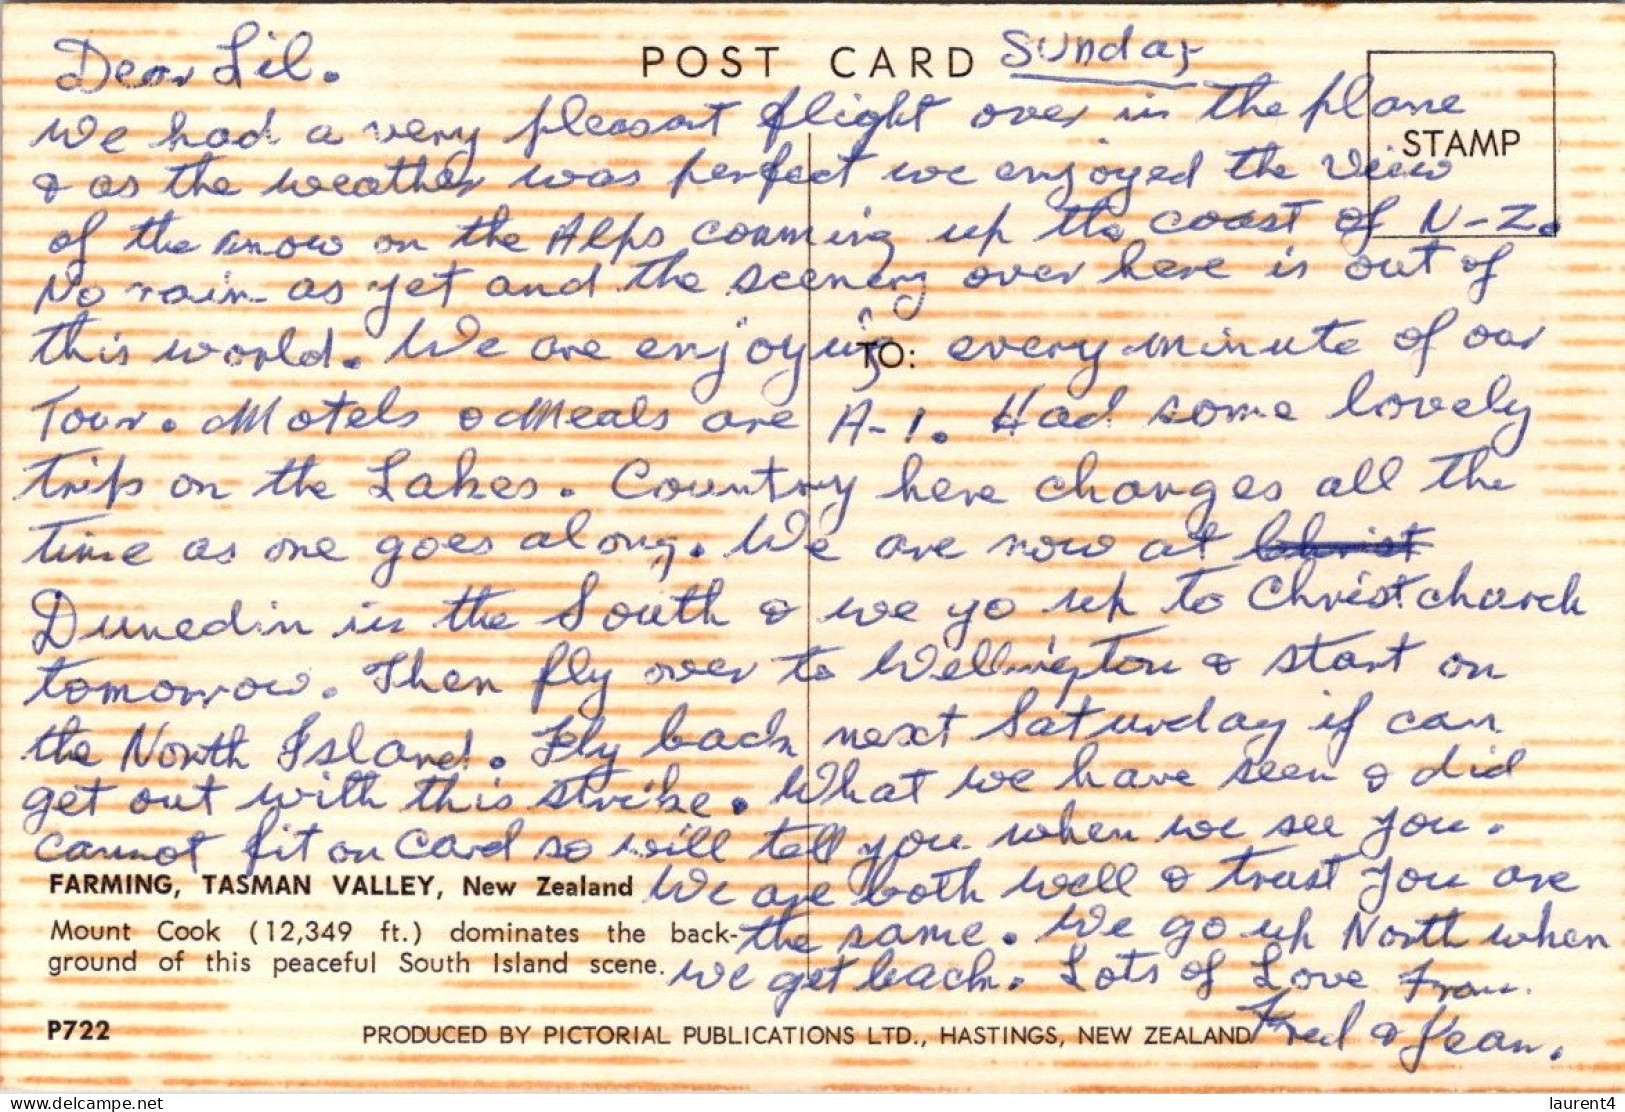 POST CARD
Sunday
STAMP
Dear Lil.
We had a very pleasant flight over in the plane
& as the weather was perfect we enjoyed the view
of the snow on the Alps comming up the coast of N-Z.
No rain as yet and the scenery over here is out of
this world. We are enjoying every minute of our
TO:
Tour. Motels & Meals are A-1. Had some lovely
trips on the Lakes. Country here changes all the
time as one goes along. We are now at Christ
Dunedin in the South & we go up to Christchurch
tomorrow. Then fly over to Wellington & start on
the North Island. Fly back next Saturday if can
get out with this strike. What we have seen & did
cannot fit on Card so will tell you when we see you.
FARMING, TASMAN VALLEY, New Zealand
We are both well & trust you are
Mount Cook (12,349 ft.) dominates the back-
the same. We go up North when
ground of this peaceful South Island scene.
we get back. Lots of Love From
P722
PRODUCED BY PICTORIAL PUBLICATIONS LTD., HASTINGS, NEW ZEALAND
Fred & Jean.
delcampe.net
laurent4